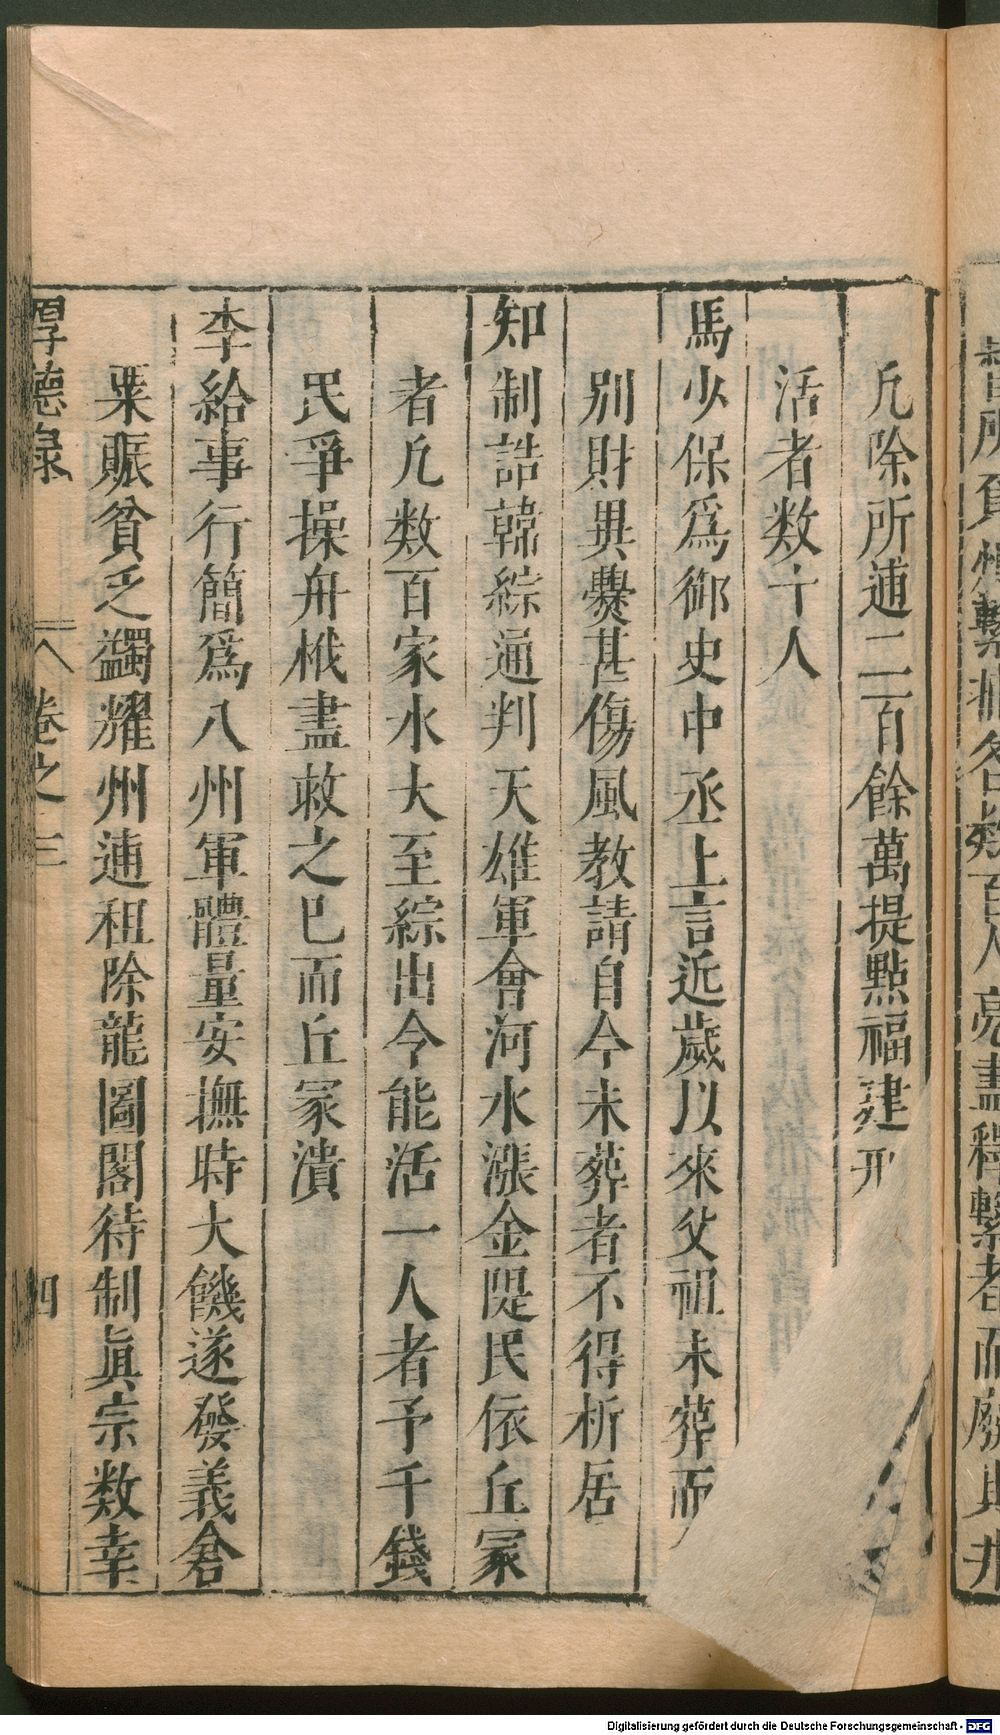 凢除所逋二百餘萬提點福建刑
活者数十人
馬少保爲御史中丞上言近歲以來父祖未葬而
別財異爨甚傷風教請自今未葬者不得析居
知制誥韓綜通判天雄軍會河水漲金隄民依丘冢
者凢数百家水大至綜出令能活一人者予千錢
民爭操舟栰盡救之已而丘冢潰
李給事行簡爲八州軍體量安撫時大饑遂發義倉
粟賑貧乏蠲耀州逋租除龍圖閣待制眞宗数幸
厚德錄
卷之三
四
Digitalisierung gefördert durch die Deutsche Forschungsgemeinschaft - DFG